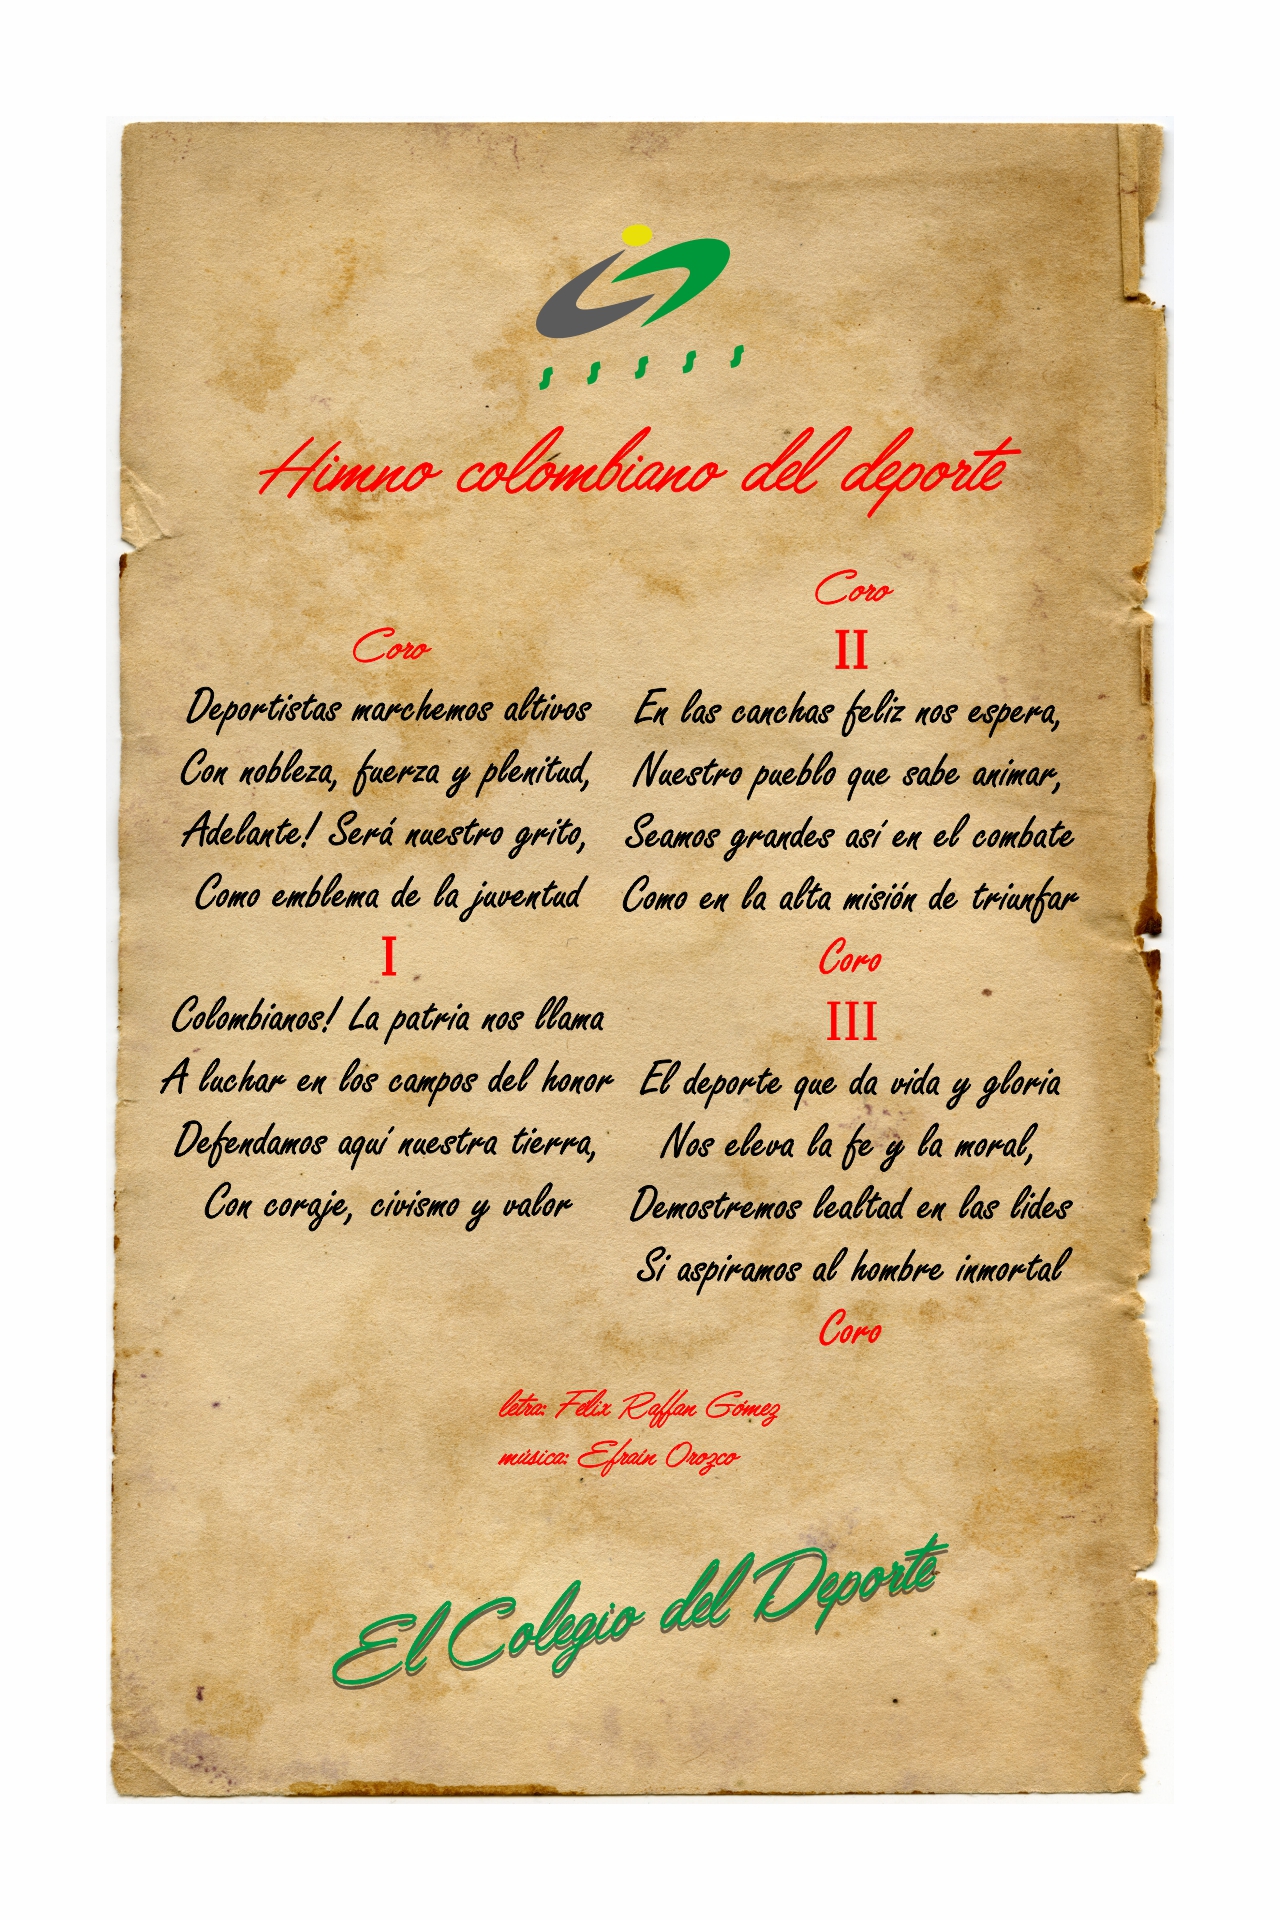 Himno colombiano del deporte
Coro
Deportistas marchemos altivos
Con nobleza, fuerza y plenitud,
Adelante! Será nuestro grito,
Como emblema de la juventud
I
Colombianos! La patria nos llama
A luchar en los campos del honor
Defendamos aquí nuestra tierra,
Con coraje, civismo y valor
Coro
II
En las canchas feliz nos espera,
Nuestro pueblo que sabe animar,
Seamos grandes así en el combate
Como en la alta misión de triunfar
Coro
III
El deporte que da vida y gloria
Nos eleva la fe y la moral,
Demostremos lealtad en las lides
Si aspiramos al hombre inmortal
Coro
letra: Félix Raffan Gómez
música: Efraín Orozco
El Colegio del Deporte